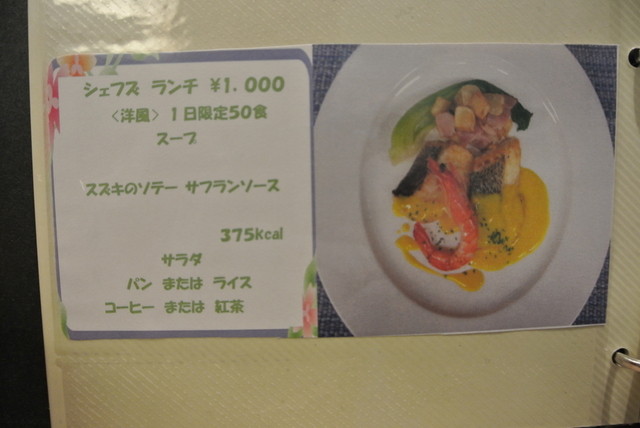 シェフズ ランチ ¥1.000
〈洋風〉1日限定50食
スープ
スズキのソテー サフランソース
375kcal
サラダ
パン または ライス
コーヒー または 紅茶